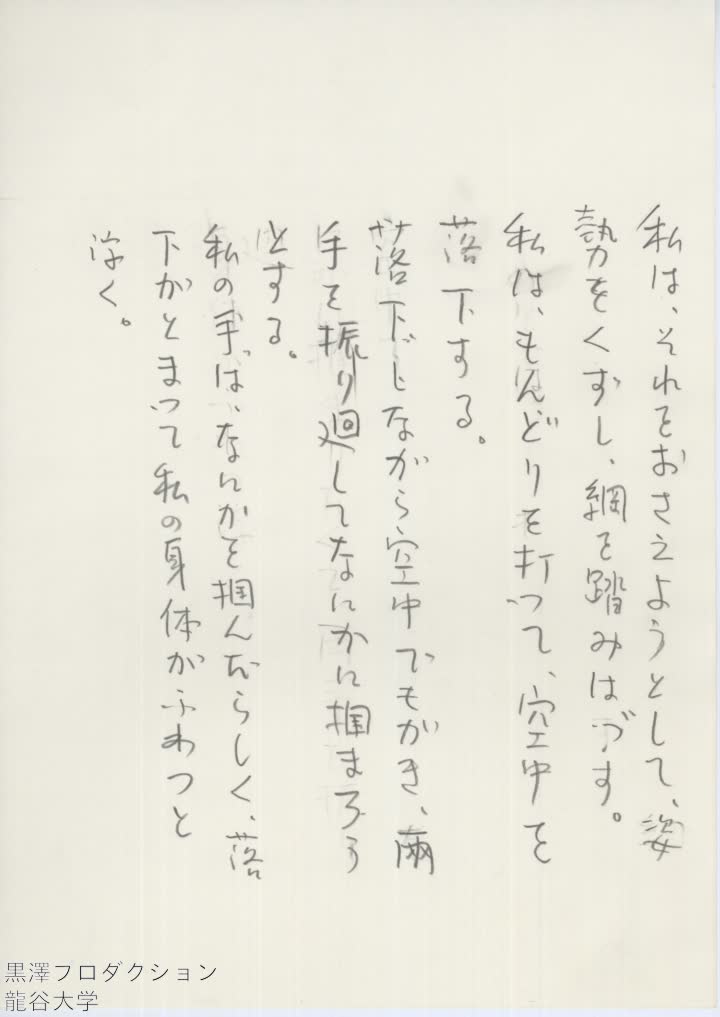 私は、それをおさえようとして、姿
勢をくずし、綱を踏みはづす。
私は、もんどりを打って、空中を
落下する。
落下しながら空中でもがき、両
手を振り廻してなにかに掴まろう
とする。
私の手は、なにかを掴んだらしく、落
下がとまって私の身体がふわっと
浮く。
黒澤プロダクション
龍谷大学